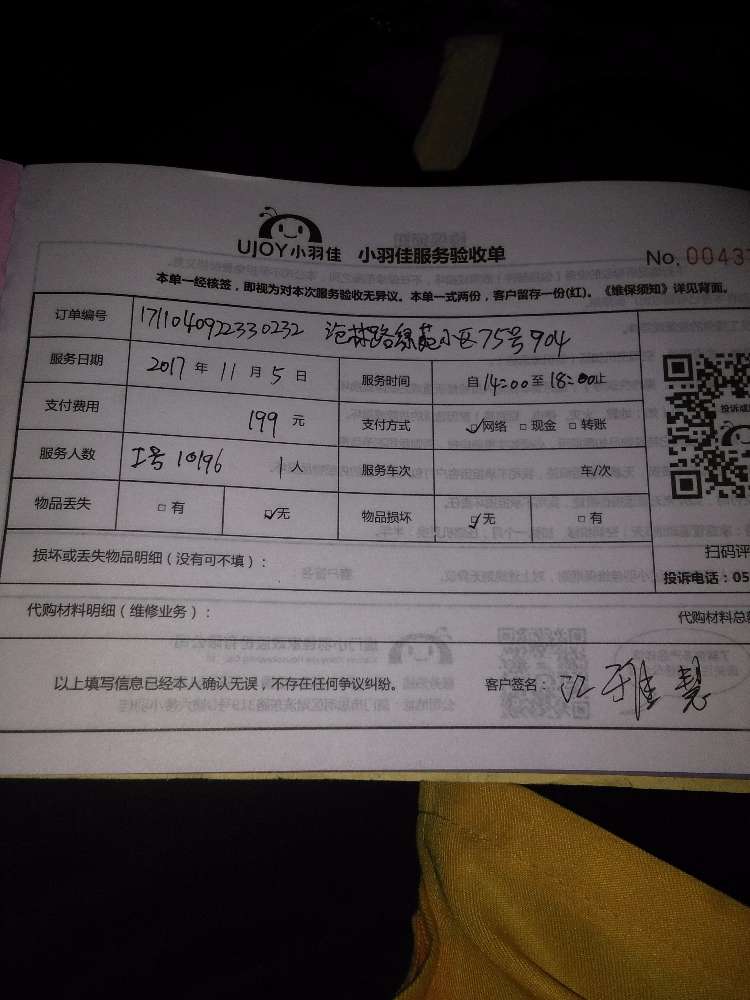 UJOY小羽佳 小羽佳服务验收单 No.00437
本单一经核签，即视为对本次服务验收无异议。本单一式两份，客户留存一份(红)。《维保须知》详见背面。
订单编号 1711040922330232 沧林路绿苑小区75号904
服务日期 2017年11月5日 服务时间 自14:00至18:00止
支付费用 199元 支付方式 ☑网络 □现金 □转账
服务人数 工号10196 1人 服务车次 车/次
物品丢失 □有 ☑无 物品损坏 ☑无 □有
投诉或
扫码评
损坏或丢失物品明细（没有可不填）：
投诉电话：05
代购材料明细（维修业务）： 代购材料总
以上填写信息已经本人确认无误，不存在任何争议纠纷。 客户签名：江雅慧